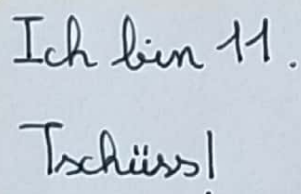 Ich bin 11.
Tschüss!